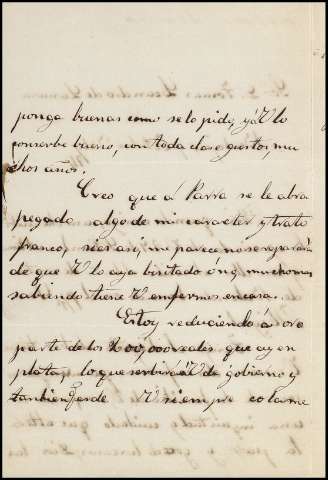 ponga buenas como se lo pido, y á V lo
conserbe bueno, con toda clase gustos, mu
chos años.
Creo que á Parra se le abra
pegado algo de mi caracter y trato
franco, si es asi, me parece no se reparará
de que V lo aya bisitado ó no, mucho mas
sabiendo tiene V enfermos en casa.
Estoy reduciendo á oro
parte de los 200,000 reales que ay en
plata, lo que serbirá á V de gobierno y
tanbien
V siempre